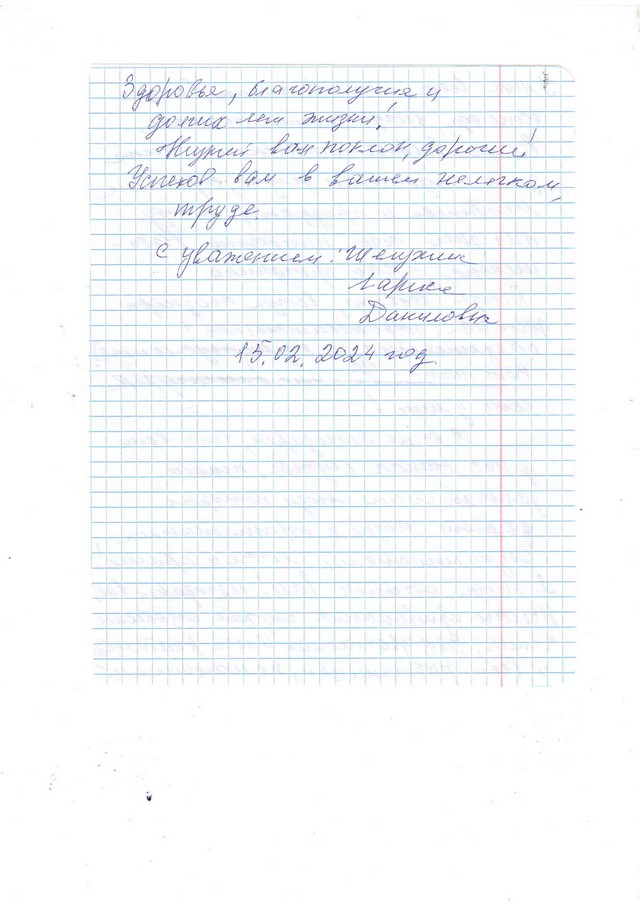 Здоровья, благополучия и
долгих лет жизни!
Низкий вам поклон, дорогие!
Успехов вам в вашем нелегком
труде.
С уважением:
Лариса
Даниловна
15.02.2024 год